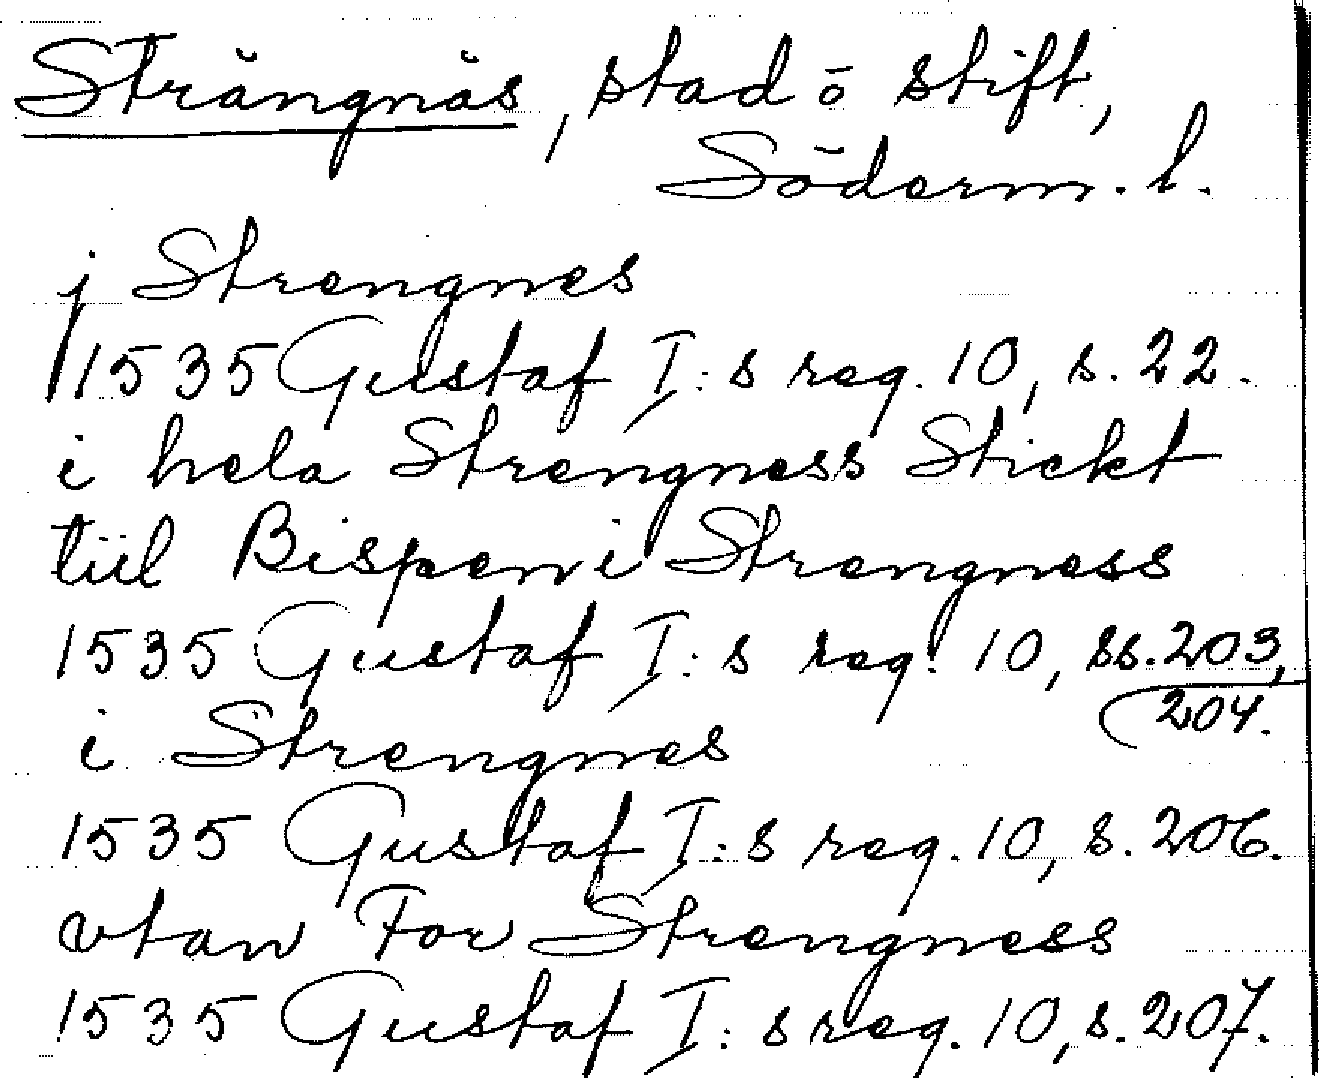 Strängnäs, stad o stift,
Söderm. l.
j Strengnes
1535 Gustaf I:s reg. 10, s. 22.
i hela Strengness Stickt
tiil Bispen i Strengness
1535 Gustaf I:s reg. 10, ss. 203,
204.
i Strengnes
1535 Gustaf I:s reg. 10, s. 206.
vtan For Strengness
1535 Gustaf I:s reg. 10, s. 207.